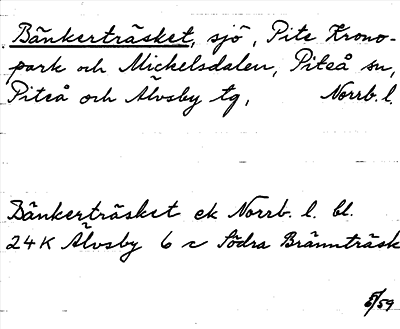 Bänkerträsket, sjö, Pite Krono-
park och Mickelsdalen, Piteå sn,
Piteå och Älvsby tg, Norrb. l.
Bänkerträsket ek Norrb. l. bl.
24K Älvsby 6 c Södra Brännträsk
5/59